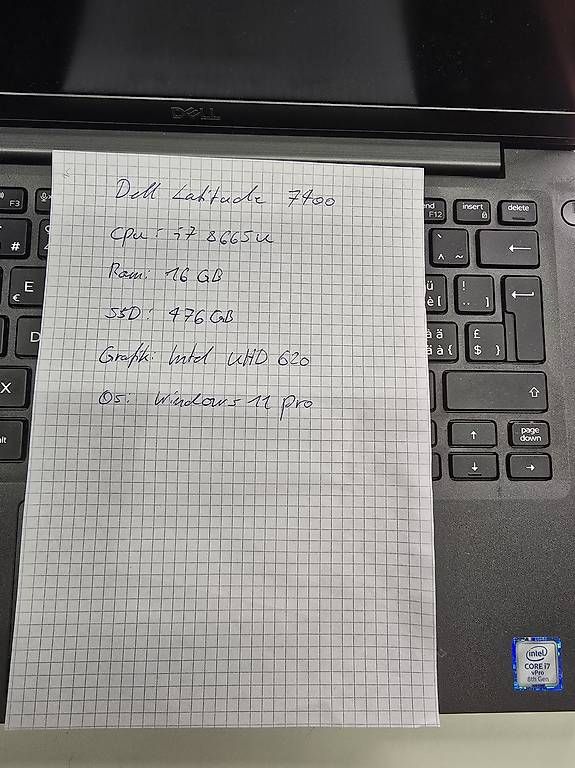 DELL
Dell Latitude 7400
Cpu: i7 8665u
Ram: 16 GB
SSD: 476GB
Grafik: Intel UHD 620
Os: Windows 11 pro
F3
end
F12
insert
delete
#
^ ~
E
€
ü
è [
!
¨ ]
D
ä
à {
£
$ }
X
alt
page
down
intel
CORE i7
vPro
8th Gen